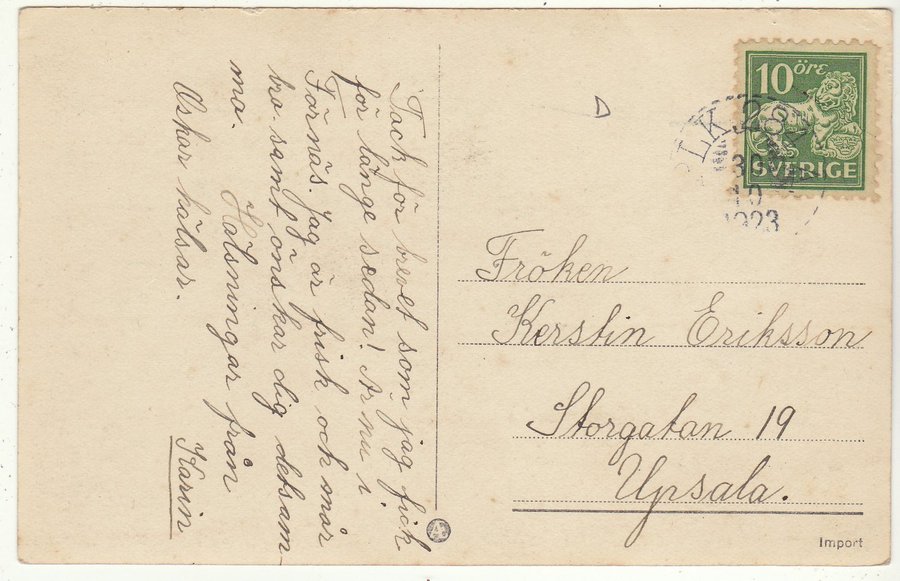 Tack för brevet som jag fick
för länge sedan! Är nu i
Fornäs. Jag är frisk och mår
bra. samt önskar dig detsam-
ma.
Hälsningar från
Karin
Oskar hälsar.
10 öre
SVERIGE
PLK 2
30
10
1923
Fröken
Kerstin Eriksson
Storgatan 19
Upsala.
Import